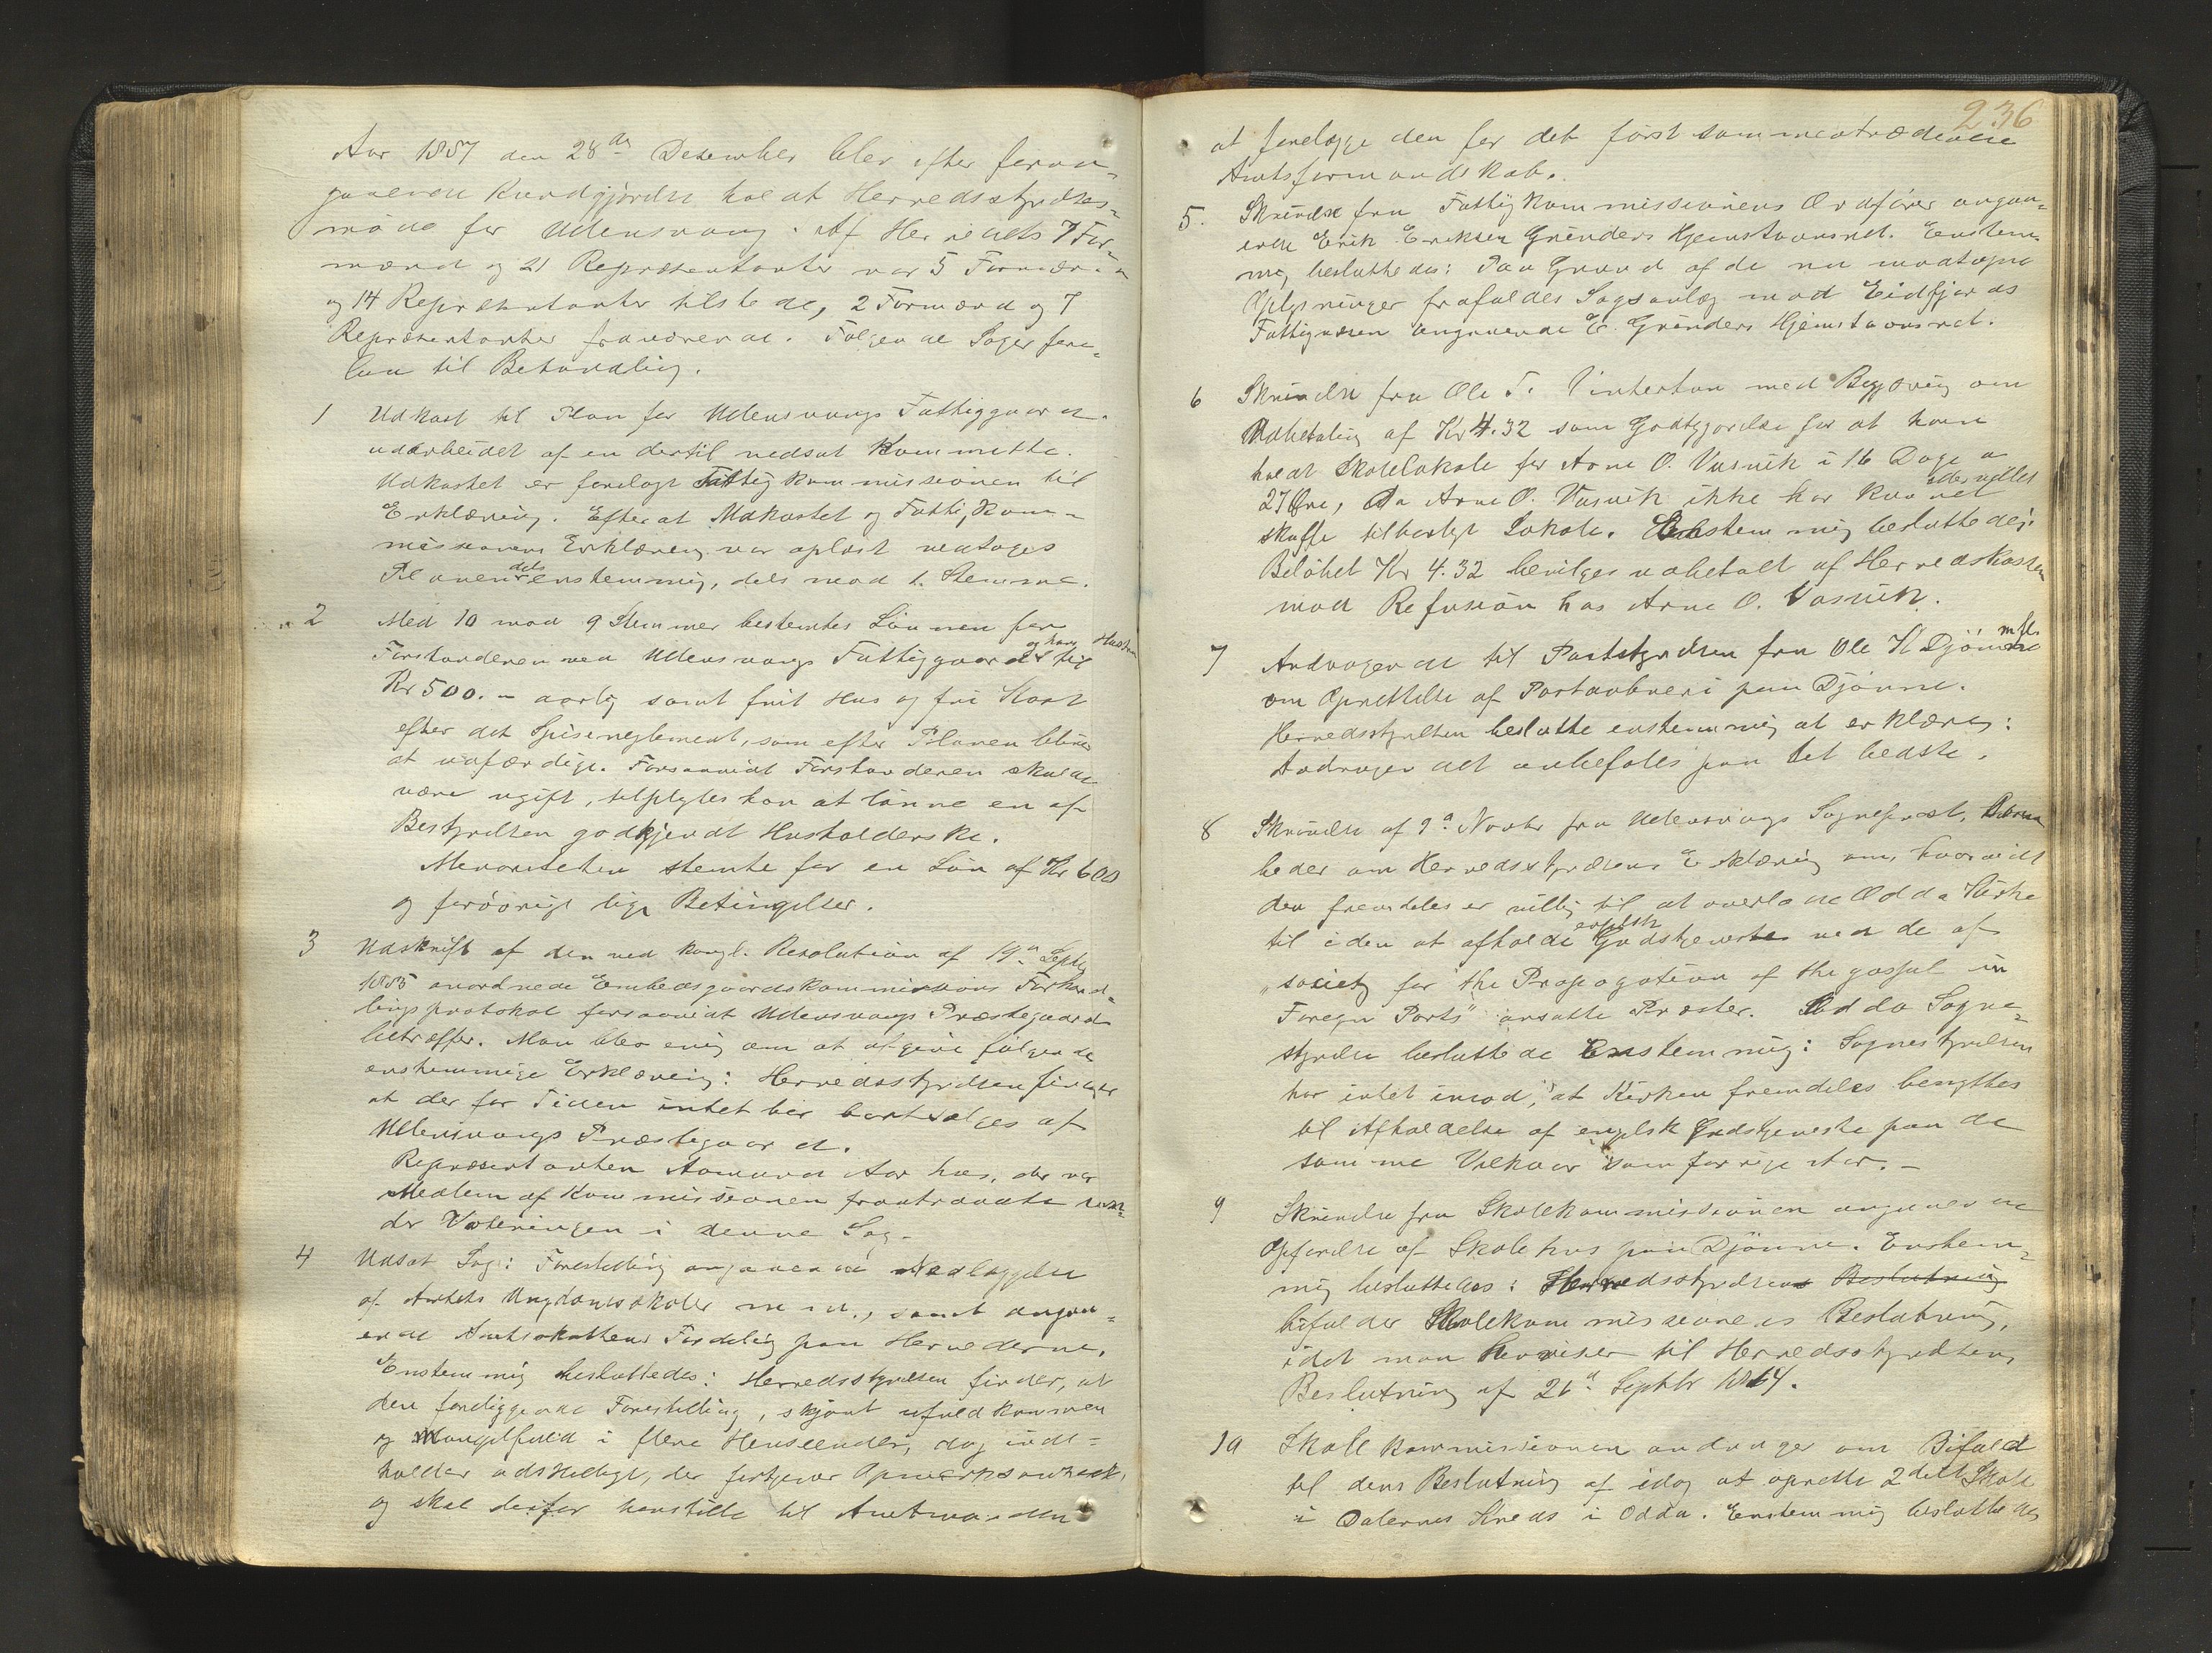 Aar 1887 den 28de Desember blev efter foran-
gaaende Kundgjørelse holdt Herredsstyrelses-
møde for Ullensvang. Af Herredets 7 For-
mænd og 21 Repræsentanter var 5 Formænd
og 14 Repræsentanter tilstede, 2 Formænd og 7
Repræsentanter fraværende. Følgende Sager fore-
laa til Behandling.
1 Udkast til Plan for Ullensvangs Fattiggaard
udarbeidet af en dertil nedsat Kommitte.
Udkastet er forelagt Fattigkommissionen til
Erklæring. Efterat Udkastet og Fattigkom-
missionens Erklæring var oplæst vedtoges
Planen dels enstemmig, dels mod 1 Stemme.
2 Med 10 mod 9 Stemmer bestemtes Lønnen for
Forstanderen ved Ullensvangs Fattiggaard og hans Hustru til
Kr 500.- aarlig samt frit Hus og fri Kost
efter det Spisereglement, som efter Planen bliver
at udfærdige. Forsaavidt Forstanderen skulde
være ugift, tilpligtes han at lønne en af
Bestyrelsen godkjendt Husholderske.
Menoriteten stemte for en Løn af Kr 600
og forøvrigt lige Betingelser.
3 Udskrift af den ved kongl. Resolution af 19de Septbr
1885 anordnede Embedsgaardskommissions Forhand-
lingsprotokol forsaavidt Ullensvangs Præstegaard
betræffer. Man blev enig om at afgive følgende
enstemmige Erklæring: Herredsstyrelsen finder
at der for Tiden intet bør bortsælges af
Ullensvangs Præstegaard.
Repræsentanten Aamund Aarhus, der var
Medlem af Kommissionen fratraadte un-
der Voteringen i denne Sag.
4 Udsat Sag: Forestilling angaaende Nedlæggelse
af Amtets Ungdomsskoler m. m., samt angaa-
ende Amtsskattens Fordeling paa Herrederne.
Enstemmig besluttedes: Herredsstyrelsen finder, at
den foreliggende Forestilling, skjønt ufuldkommen
og mangelfuld i flere Henseender, dog inde-
holder adskilligt, der fortjener Opmærksomhed,
og skal derfor henstille til Amtmanden
236
at forelægge den for det først sammentrædende
Amtsformandskab.
5. Skrivelse fra Fattigkommissionens Ordfører angaa-
ende Erik Eriksen Grinders Hjemstavnsret. Enstem-
mig besluttedes: Paa Grund af de nu modtagne
Oplysninger frafaldes Sagsanlæg mod Eidfjords
Fattigvæsen angaaende E. Grinders Hjemstavnsret.
6 Skrivelse fra Ole T. Vintertun med Begjæring om
Udbetaling af Kr 4.32 som Godtgjørelse for at have
holdt Skolelokale for Arne O. Vasvik i 16 Dage a
27 Øre, da Arne O. Vasvik ikke har kunnet eller villet
skaffe tilbørligt Lokale. Enstemmig besluttedes:
Beløbet Kr 4.32 bevilges udbetalt af Herredskassen
mod Refusion hos Arne O. Vasvik.
7 Andragende til Poststyrelsen fra Ole H Djønne m fl.
om Oprettelse af Postaabneri paa Djønne.
Herredsstyrelsen beslutte enstemmig at erklære:
Andragendet anbefales paa det bedste.
8 Skrivelse af 9de Novbr fra Ullensvangs Sogneprest,
beder om Herredsstyrelsens Erklæring om, hvorvidt
den fremdeles er villig til at overlade Odda Kirke
til i den at afholde engelsk Gudstjeneste ved de af
"society for the Propogation of the gospel in
Foregn Parts" ansatte Præster. Odda Sogne-
styrelse besluttede Enstemmig: Sognestyrelsen
har intet imod, at Kirken fremdeles benyttes
til Afholdelse af engelsk Gudstjeneste paa de
samme Vilkaar som forrige Aar.-
9 Skrivelse fra Skolekommissionen angaaende
Opførelse af Skolehus paa Djønne. Enstem-
mig besluttedes: Herredsstyrelsen Beslutning
bifalder Skolekommissionens Beslutning,
idet man henviser til Herredsstyrelsens
Beslutning af 26de Septbr 1884.
10 Skolekommissionen andrager om Bifald
til dens Beslutning af idag at oprette 2delt Skole
i Dalernes Kreds i Odda. Enstemmig besluttedes